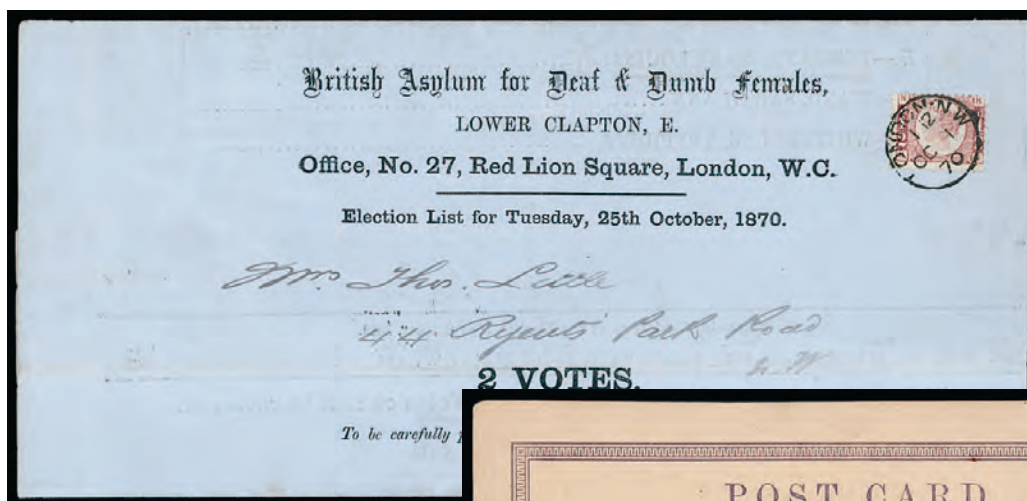 British Asylum for Deaf & Dumb Females,
LOWER CLAPTON, E.
Office, No. 27, Red Lion Square, London, W.C.
Election List for Tuesday, 25th October, 1870.
LONDON·N.W
12
OC 1
70
Mrs. Thos. Little
44 Regents Park Road
N.W
2 VOTES.
To be carefully
POST CARD